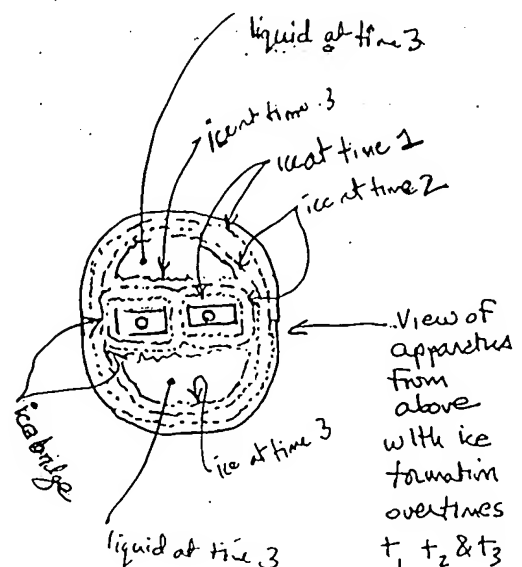 liquid at time 3
ice at time 3
ice at time 1
ice at time 2
View of
apparatus
from
above
with ice
formation
overtimes
t1 t2 & t3
icebridge
ice at time 3
liquid at time 3